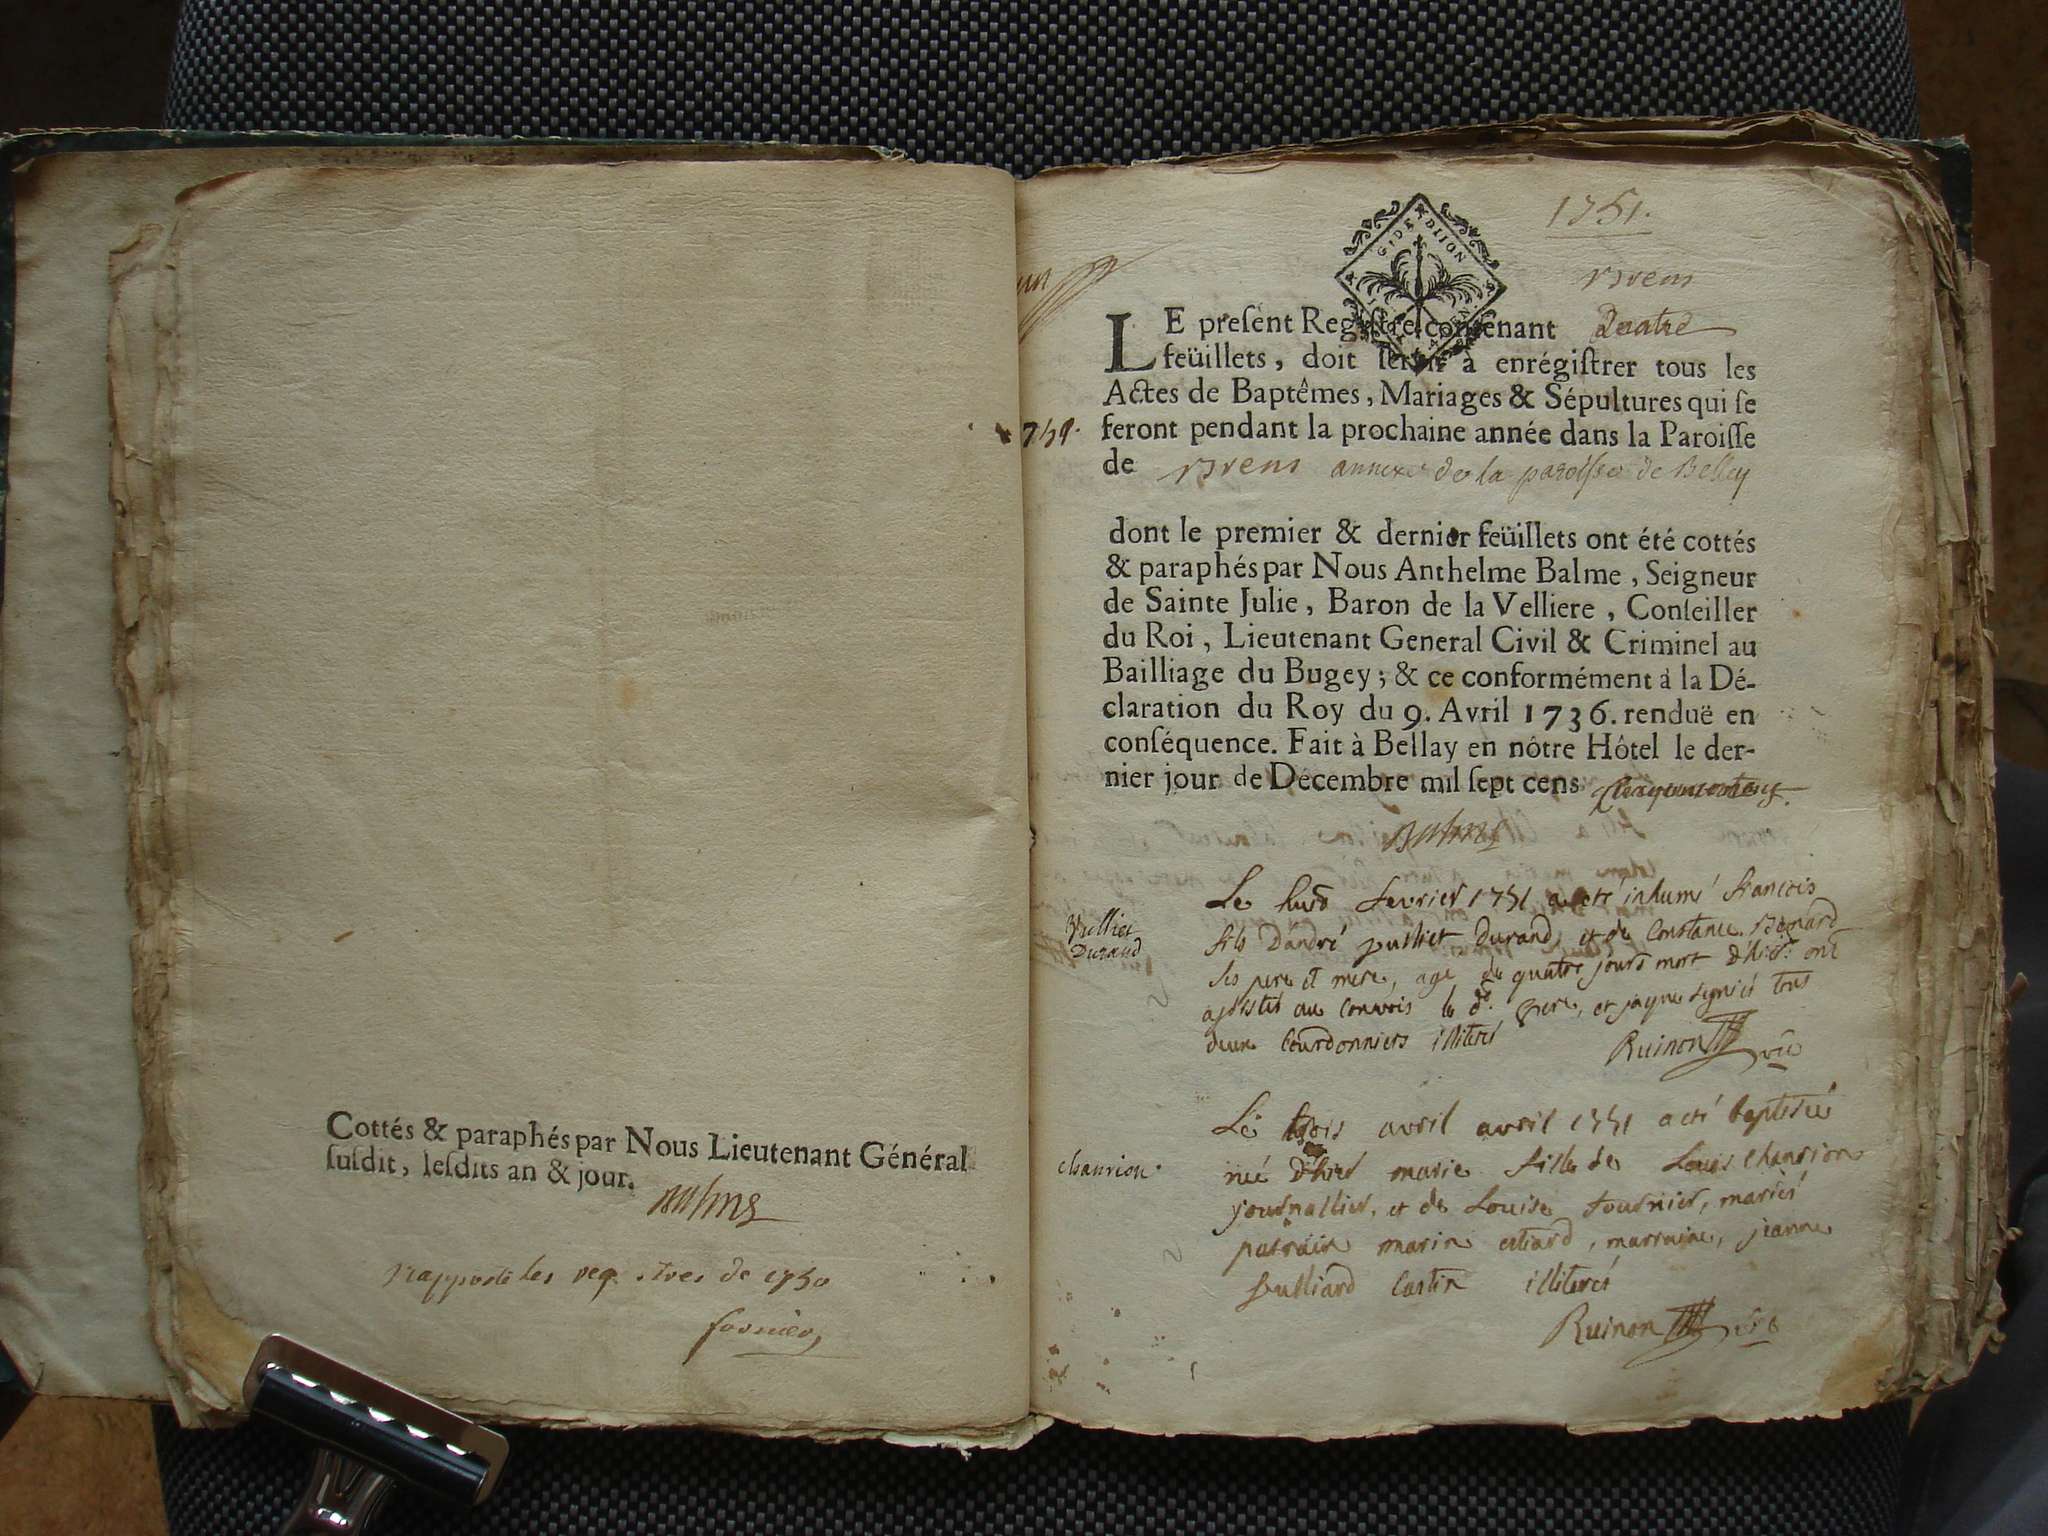 Cottés & paraphés par Nous Lieutenant Général
susdit, lesdits an & jour.
Balme
Rapporté les registres de 1750
fornier
1751.
Brens
GIDE DIJON
LE present Registre contenant Quatre
feüillets, doit servir à enrégistrer tous les
Actes de Baptêmes, Mariages & Sépultures qui se
feront pendant la prochaine année dans la Paroisse
de Brens annexe de la paroisse de Belley
dont le premier & dernier feüillets ont été cottés
& paraphés par Nous Anthelme Balme, Seigneur
de Sainte Julie, Baron de la Velliere, Conseiller
du Roi, Lieutenant General Civil & Criminel au
Bailliage du Bugey; & ce conformément à la Dé-
claration du Roy du 9. Avril 1736. renduë en
conséquence. Fait à Bellay en nôtre Hôtel le der-
nier jour de Décembre mil sept cens Cinquante
Balme
Pulliet
Durand
Le huit fevrier 1751 a eté inhumé francois
fils D'andré pulliet Durand, et de Constance Bonard
ses pere et mere, agé de quatre jours mort d'hier. ont
assistés au convois le dt. pere, et signés tous
deux illiterés
Ruinon vic
chaurion
Le trois avril avril 1751 a eté baptisée
née d'hier marie fille de Louis Chaurion
journallier, et de Louise fournier, mariés
parrain marin, marraine, jeanne
Pulliard Castin illiterés
Ruinon vic